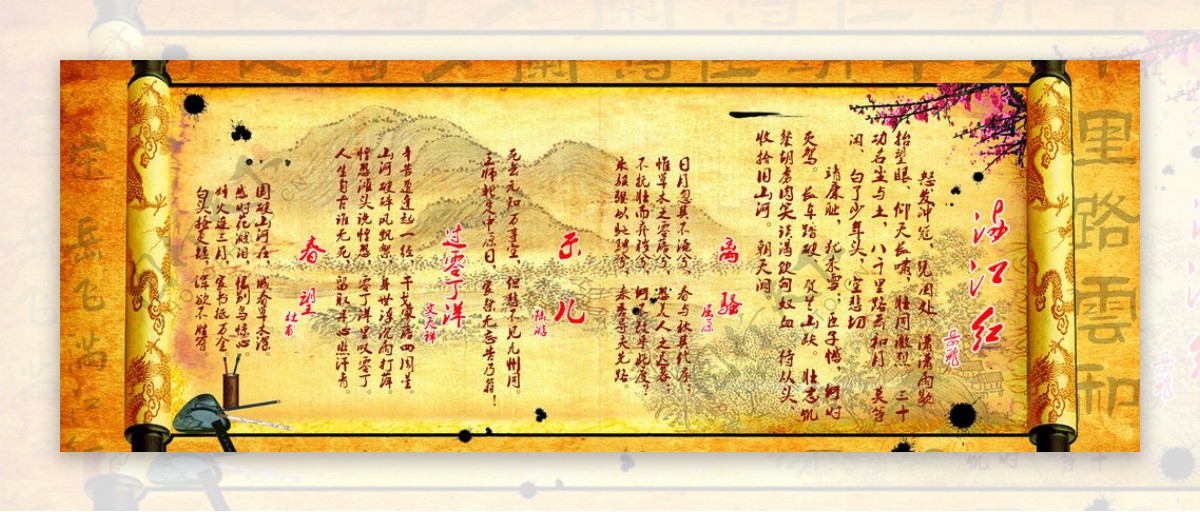 里路雲和
满江红
岳飞
怒发冲冠,凭阑处、潇潇雨歇
抬望眼、仰天长啸,壮怀激烈。三十
功名尘与土,八千里路云和月。莫等
闲、白了少年头,空悲切
靖康耻,犹未雪。臣子憾,何时
灭驾。长车踏破,贺兰山缺。壮志饥
餐胡虏肉,笑谈渴饮匈奴血。待从头、
收拾旧山河。朝天阙
离骚
屈原
日月忽其不淹兮,春与秋其代序;
惟草木之零落兮,恐美人之迟暮。
不抚壮而弃秽兮,何不改乎此度?
乘骐骥以驰骋兮,来吾导夫先路
示儿
陆游
死去元知万事空,但悲不见九州同。
王师北定中原日,家祭无忘告乃翁!
过零丁洋
文天祥
辛苦遭逢起一经,干戈寥落四周星
山河破碎风飘絮,身世浮沉雨打萍。
惶恐滩头说惶恐,零丁洋里叹零丁
人生自古谁无死,留取丹心照汗青
春望
杜甫
国破山河在,城春草木深。
感时花溅泪,恨别鸟惊心
烽火连三月,家书抵万金
白头搔更短,浑欲不胜簪
岳飞满